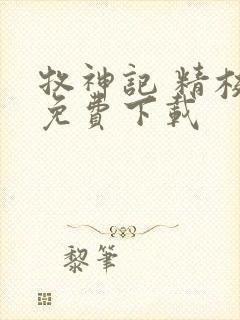 牧神記 精校
免費下載
黎筆